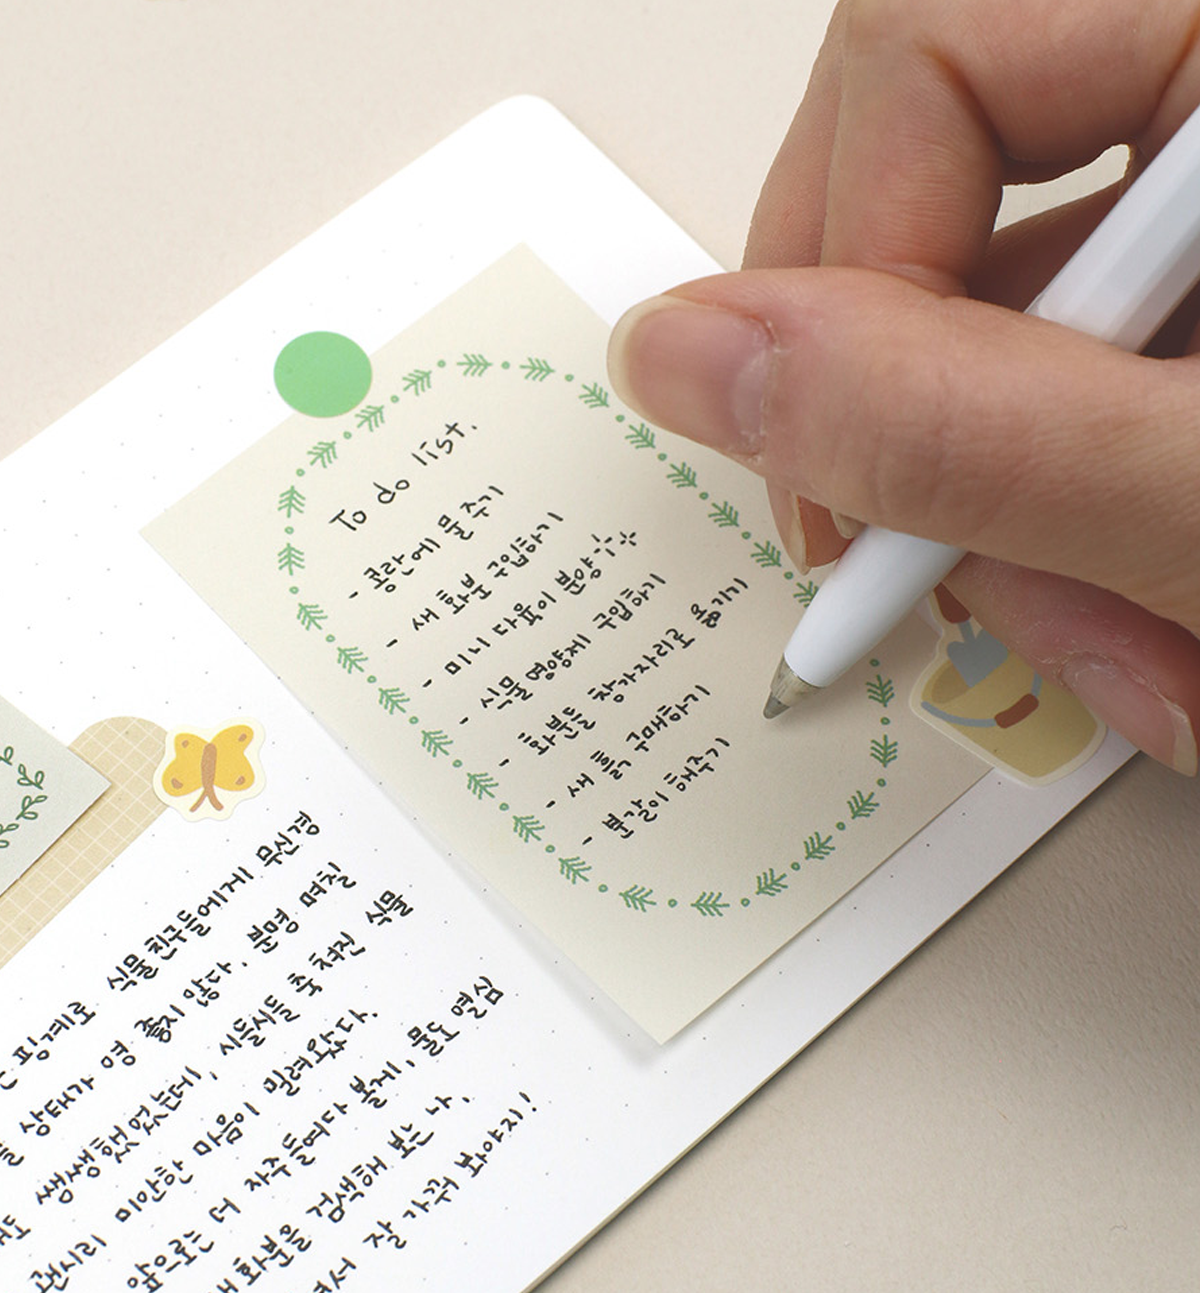 To do list.
- 콩란에 물 주기
- 새 화분 구입하기
- 미니 다육이 분양
- 식물 영양제 구입하기
- 화분들 창가자리로 옮기기
- 새 흙 구매하기
- 분갈이 해주기
핑계로 식물 친구들에게 무신경
상태가 영 좋지 않다. 분명 며칠
쌩쌩했었는데, 시들시들 축 쳐진 식물
괜시리 미안한 마음이 밀려왔다.
앞으로는 더 자주 들여다 볼게, 물도 열심
화분을 검색해 보는 나.
잘 가꿔 봐야지!